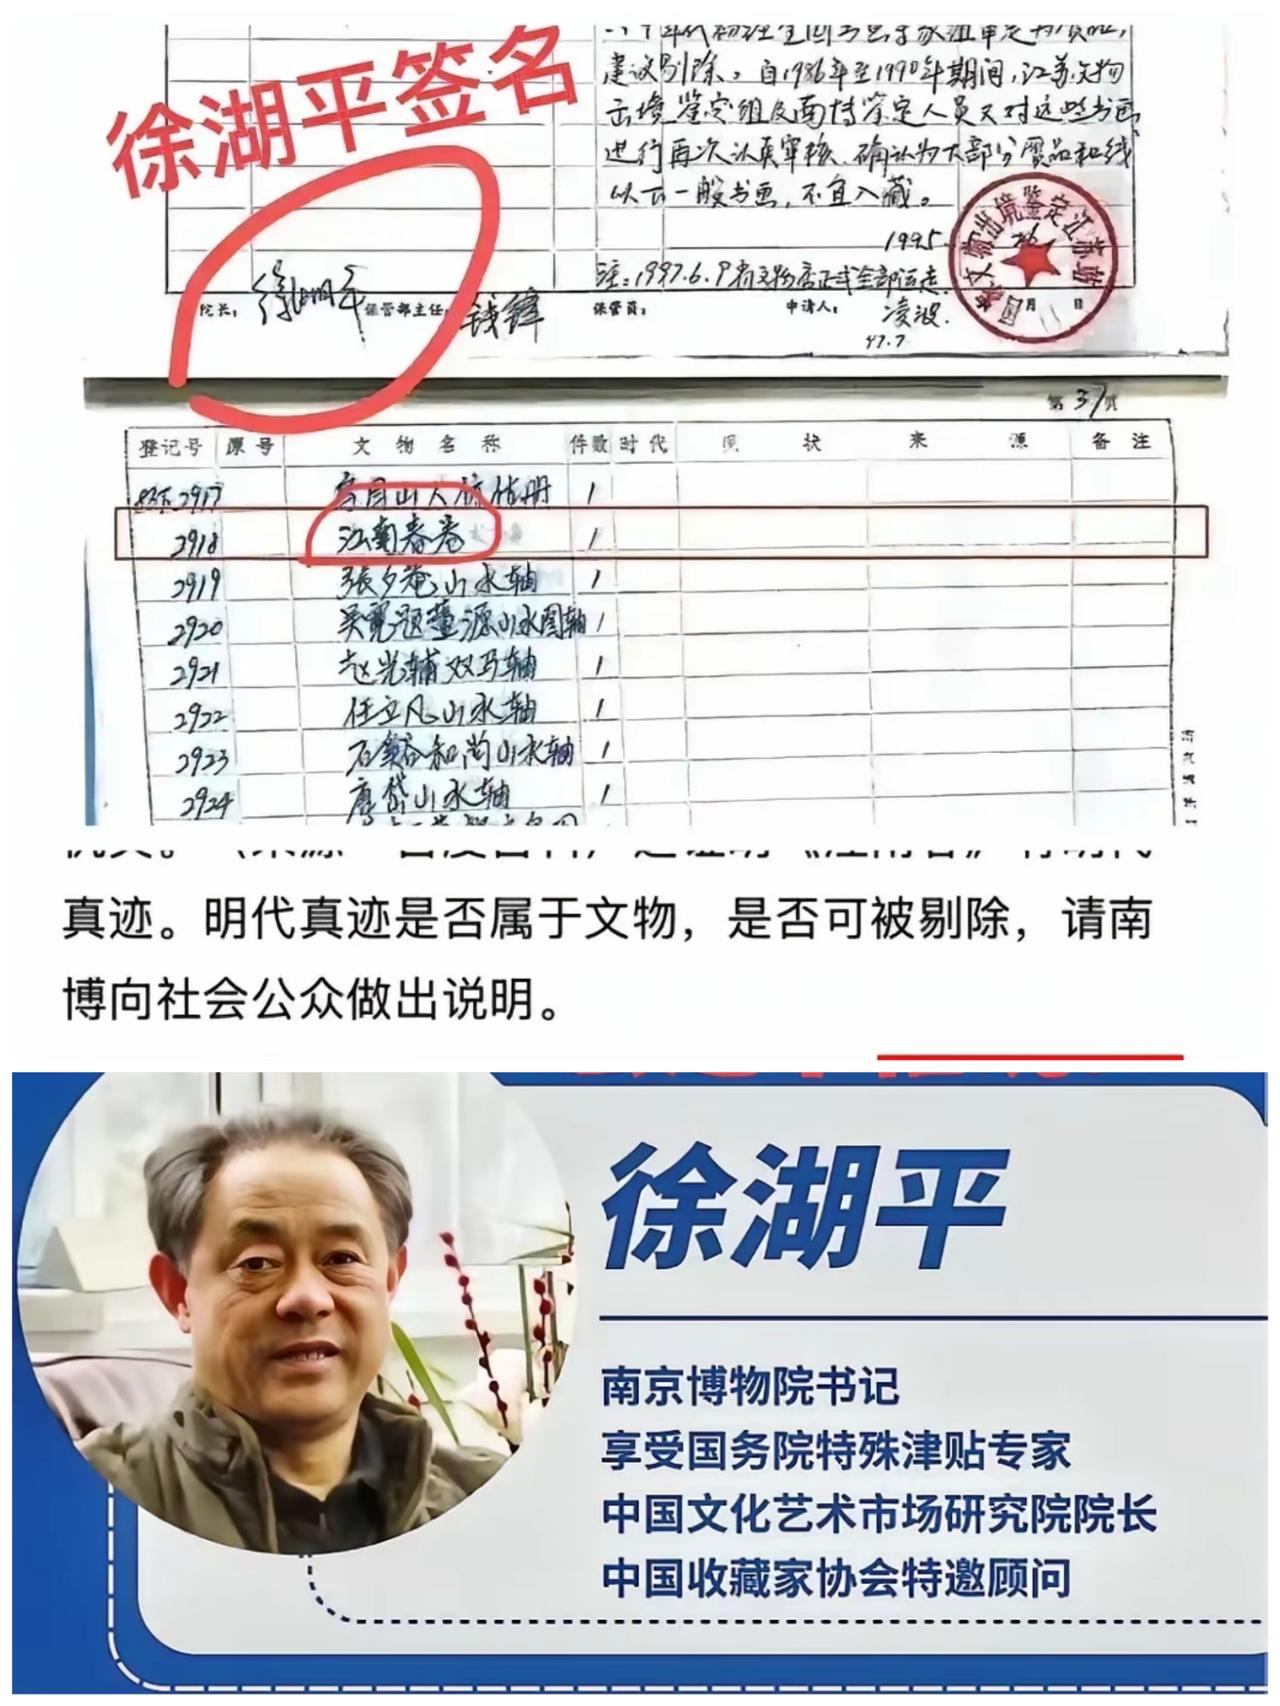 徐湖平签名
建议剔除。自1986年至1990年期间,江苏文物
出境鉴定组及南博鉴定人员又对这些书画
进行再次认真审核、确认为大部分赝品和线
以下一般书画,不宜入藏。
1995.
注:1997.6.9 全部运走
院长: 徐湖平 保管部主任: 钱锋 保管员: 申请人: 凌波.
97.7
月 日
第 37 页
登记号 原号 文物名称 件数 时代 现状 来源 备注
2917 山人 册 1
2918 江南春卷 1
2919 張夕菴山水轴 1
2920 吴宽题董源山水图轴 1
2921 赵光辅双马轴 1
2922 任立凡山水轴 1
2923 石溪和尚山水轴 1
2924 唐岱山水轴 1
真迹。明代真迹是否属于文物，是否可被剔除，请南
博向社会公众做出说明。
徐湖平
南京博物院书记
享受国务院特殊津贴专家
中国文化艺术市场研究院院长
中国收藏家协会特邀顾问